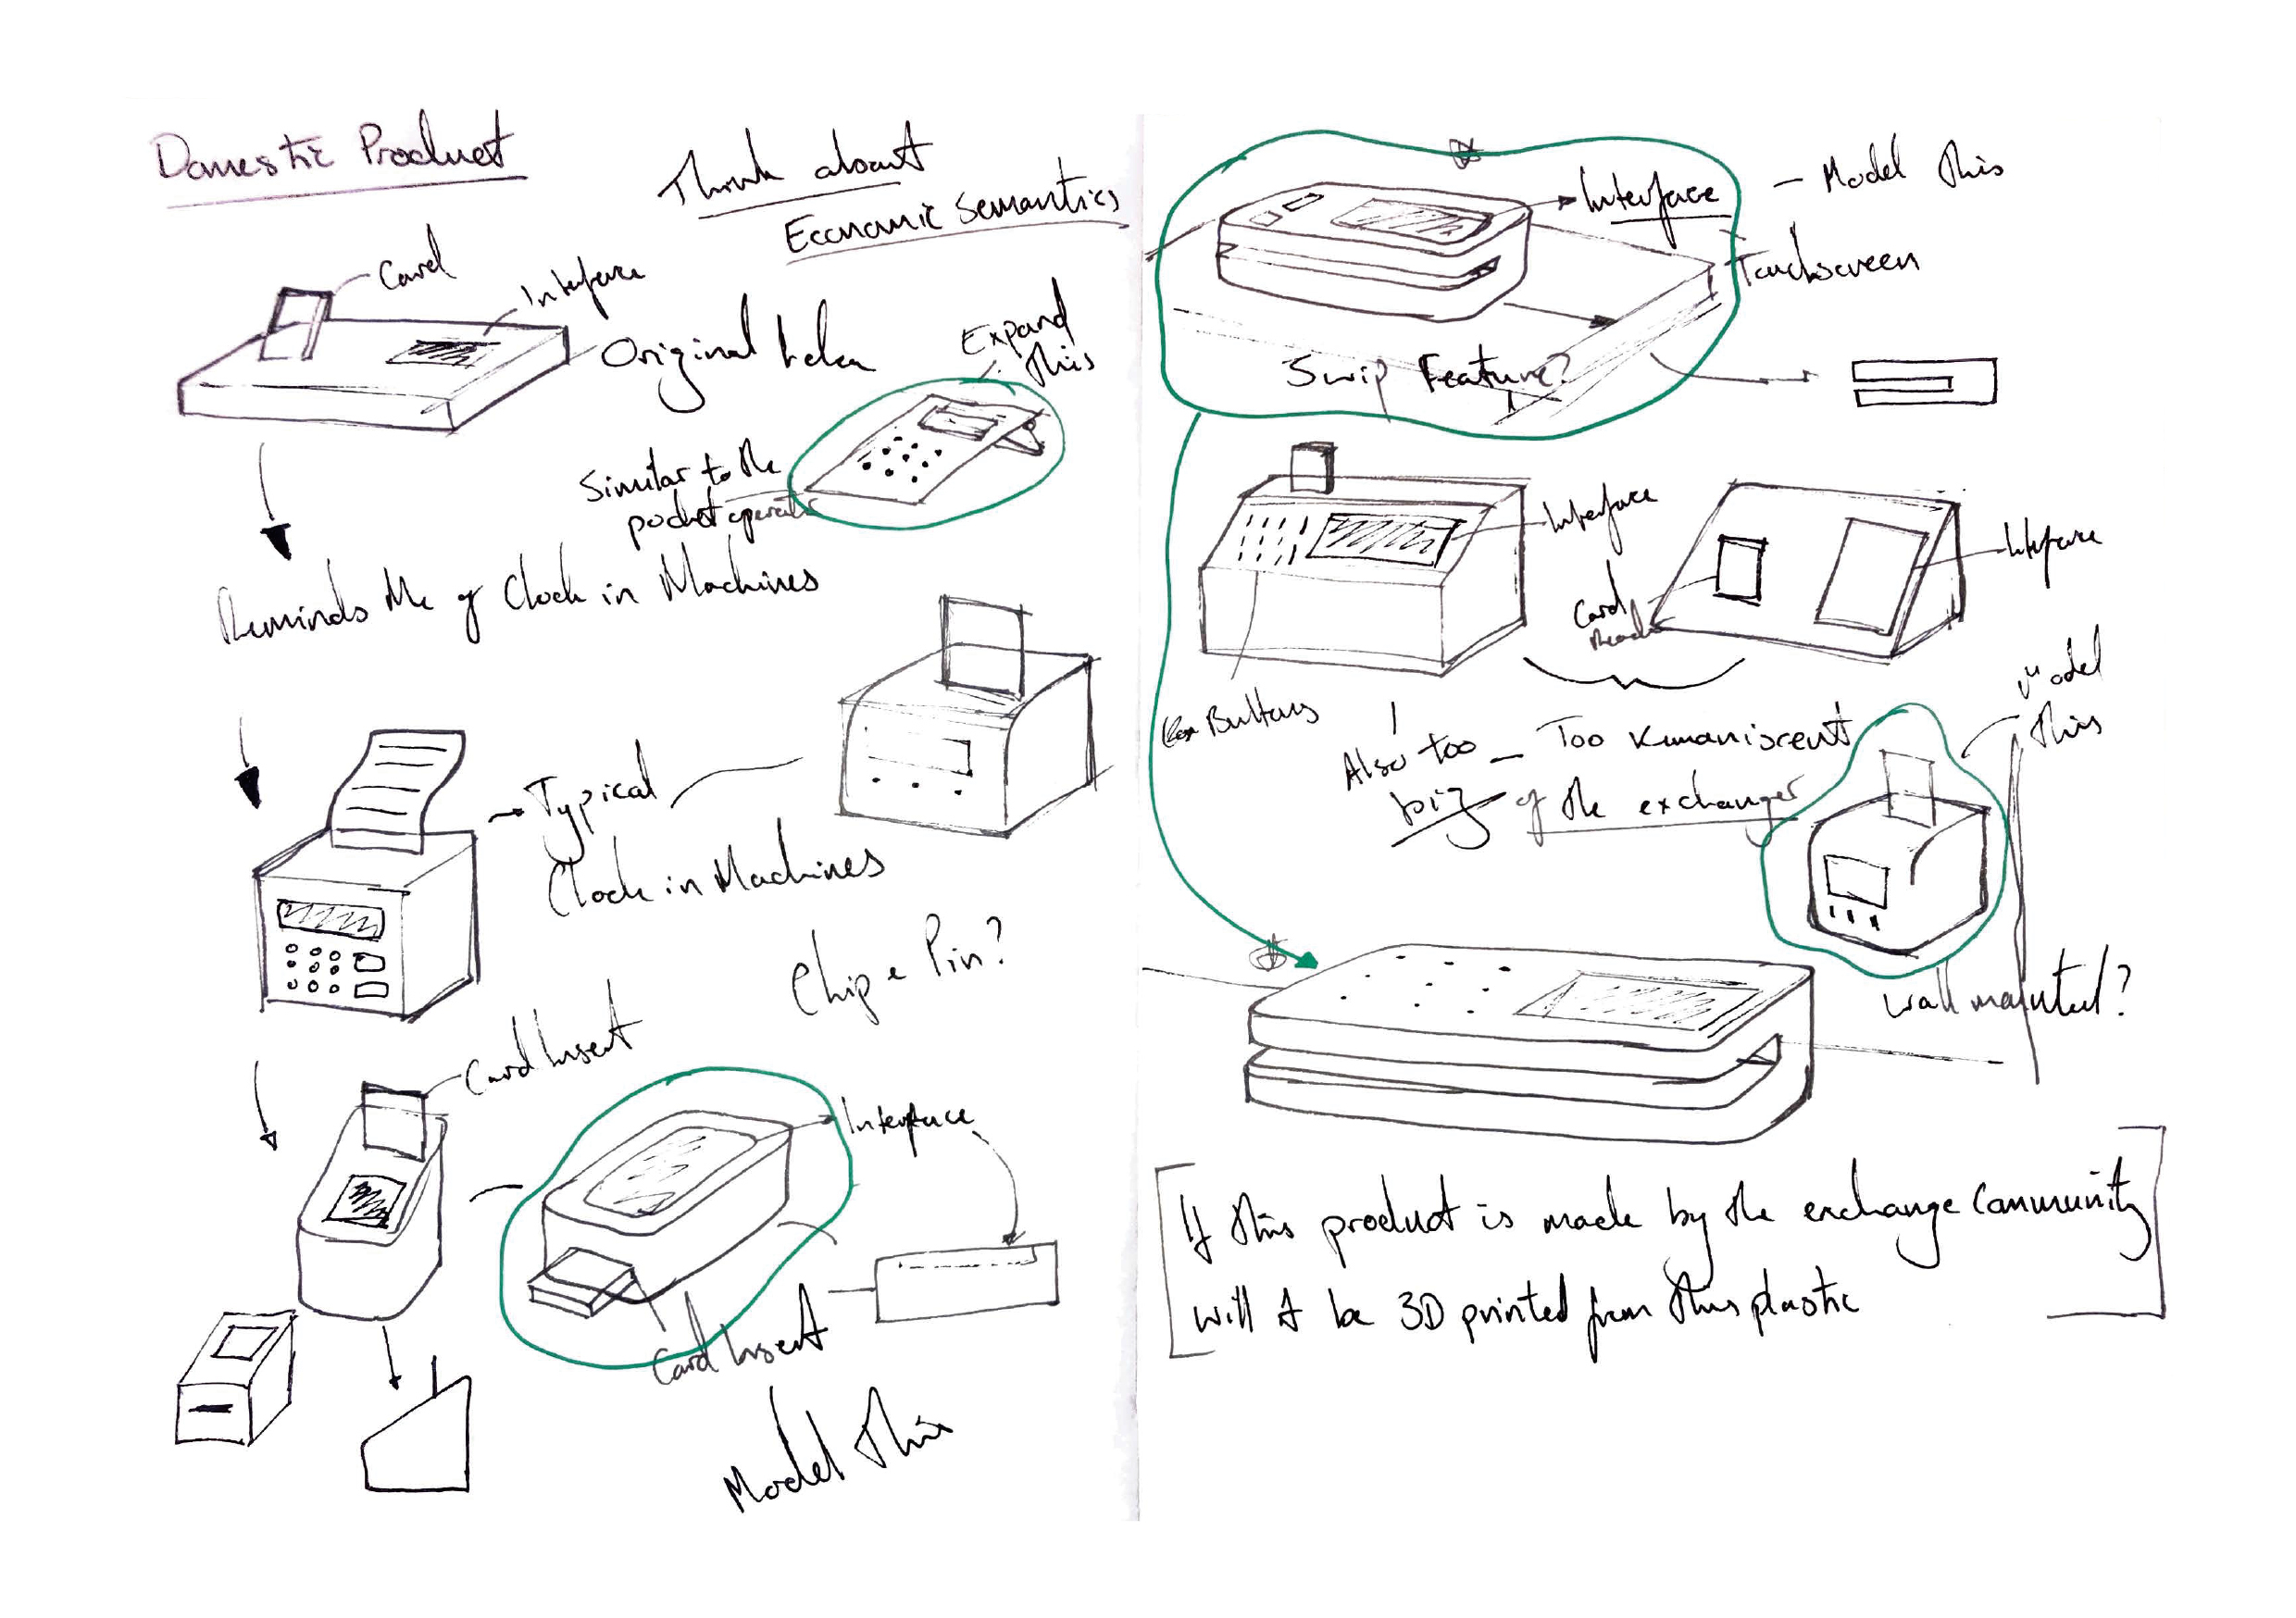 Domestic Product
Think about
Economic Semantics
Card
Interface
Original Idea
Expand
This
Similar to the
pocket operator
Reminds Me of Clock in Machines
Typical
Clock in Machines
Chip & Pin?
Card Insert
Interface
Card Insert
Model This
Interface
- Model This
Touchscreen
Swip Feature?
Interface
Interface
Card
Reader
Buttons
Also too
big
- Too
of the exchanger
Model
This
Wall mounted?
If this product is made by the exchange community
will it be 3D printed from this plastic